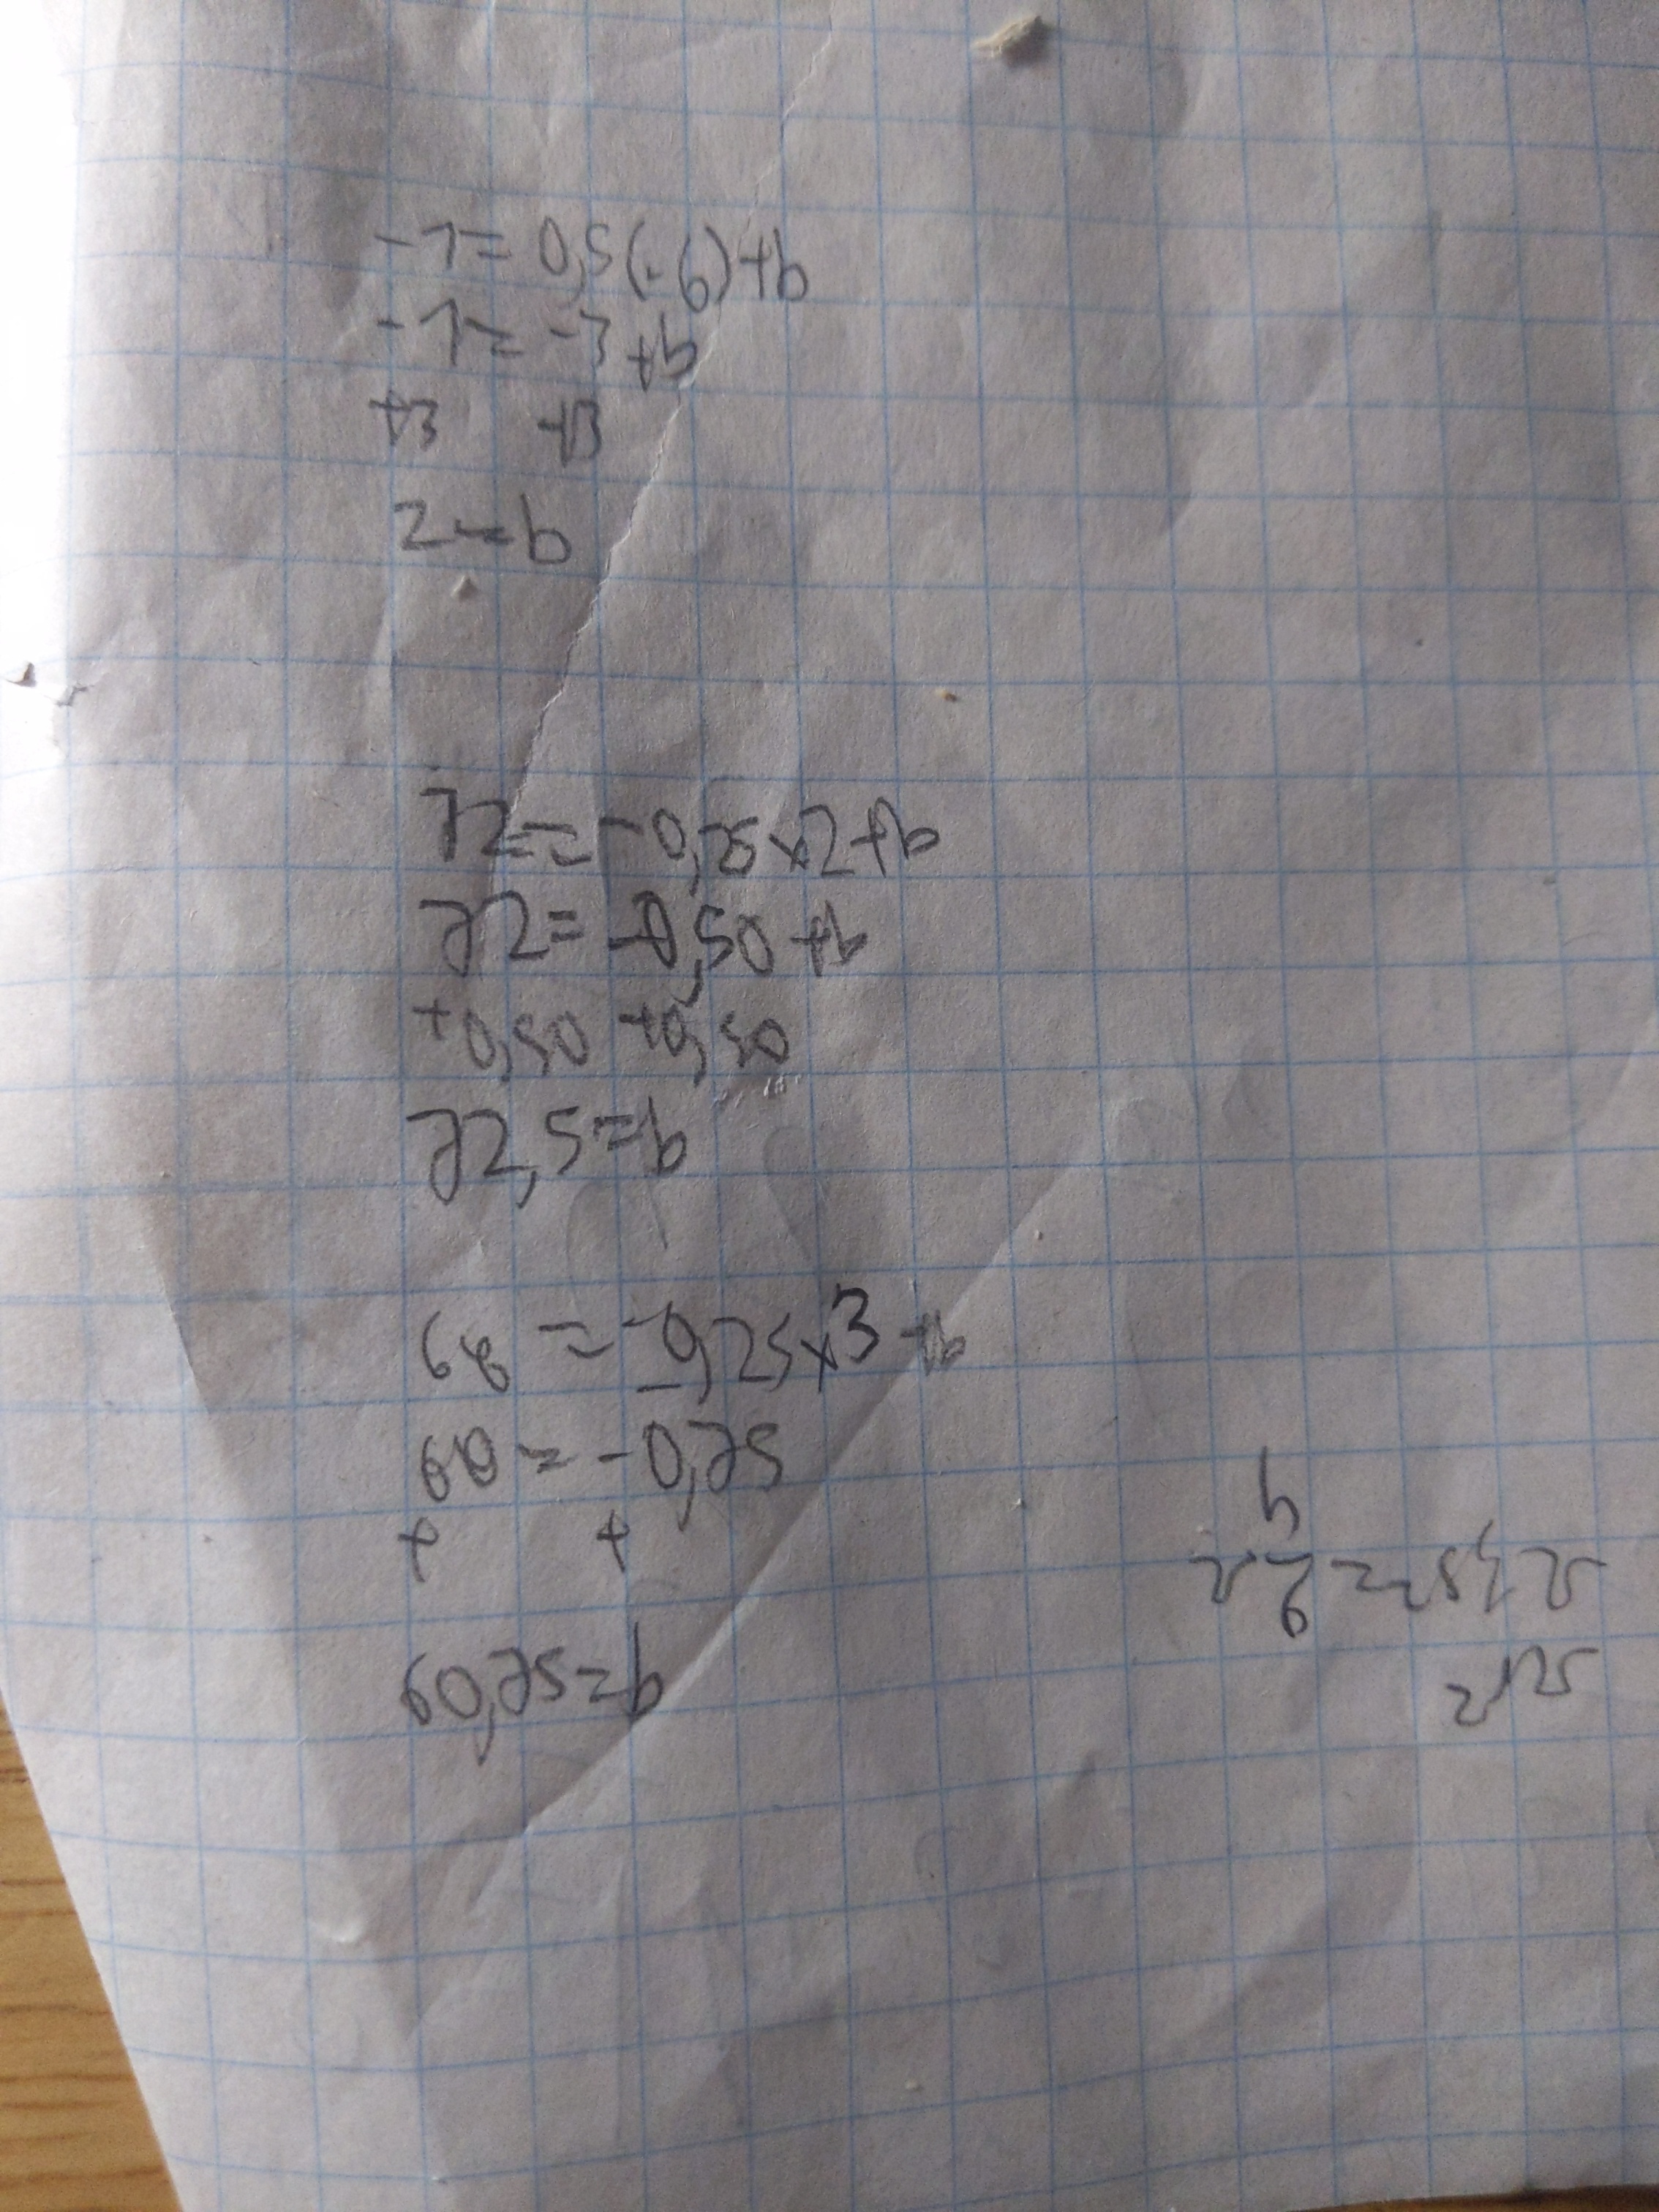 -1= 0,5(-6)+b
-1= -3+b
+3 +3
2=b
72= -0,25x2+b
72= -0,50+b
+0,50 +0,50
72,5=b
68 = -0,25x3+b
68 = -0,75
+ +
60,75=b